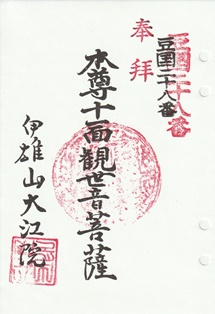 豆国二十八番
豆国二十八番
奉拝
本尊十一面観世音菩薩
伊雄山大江院